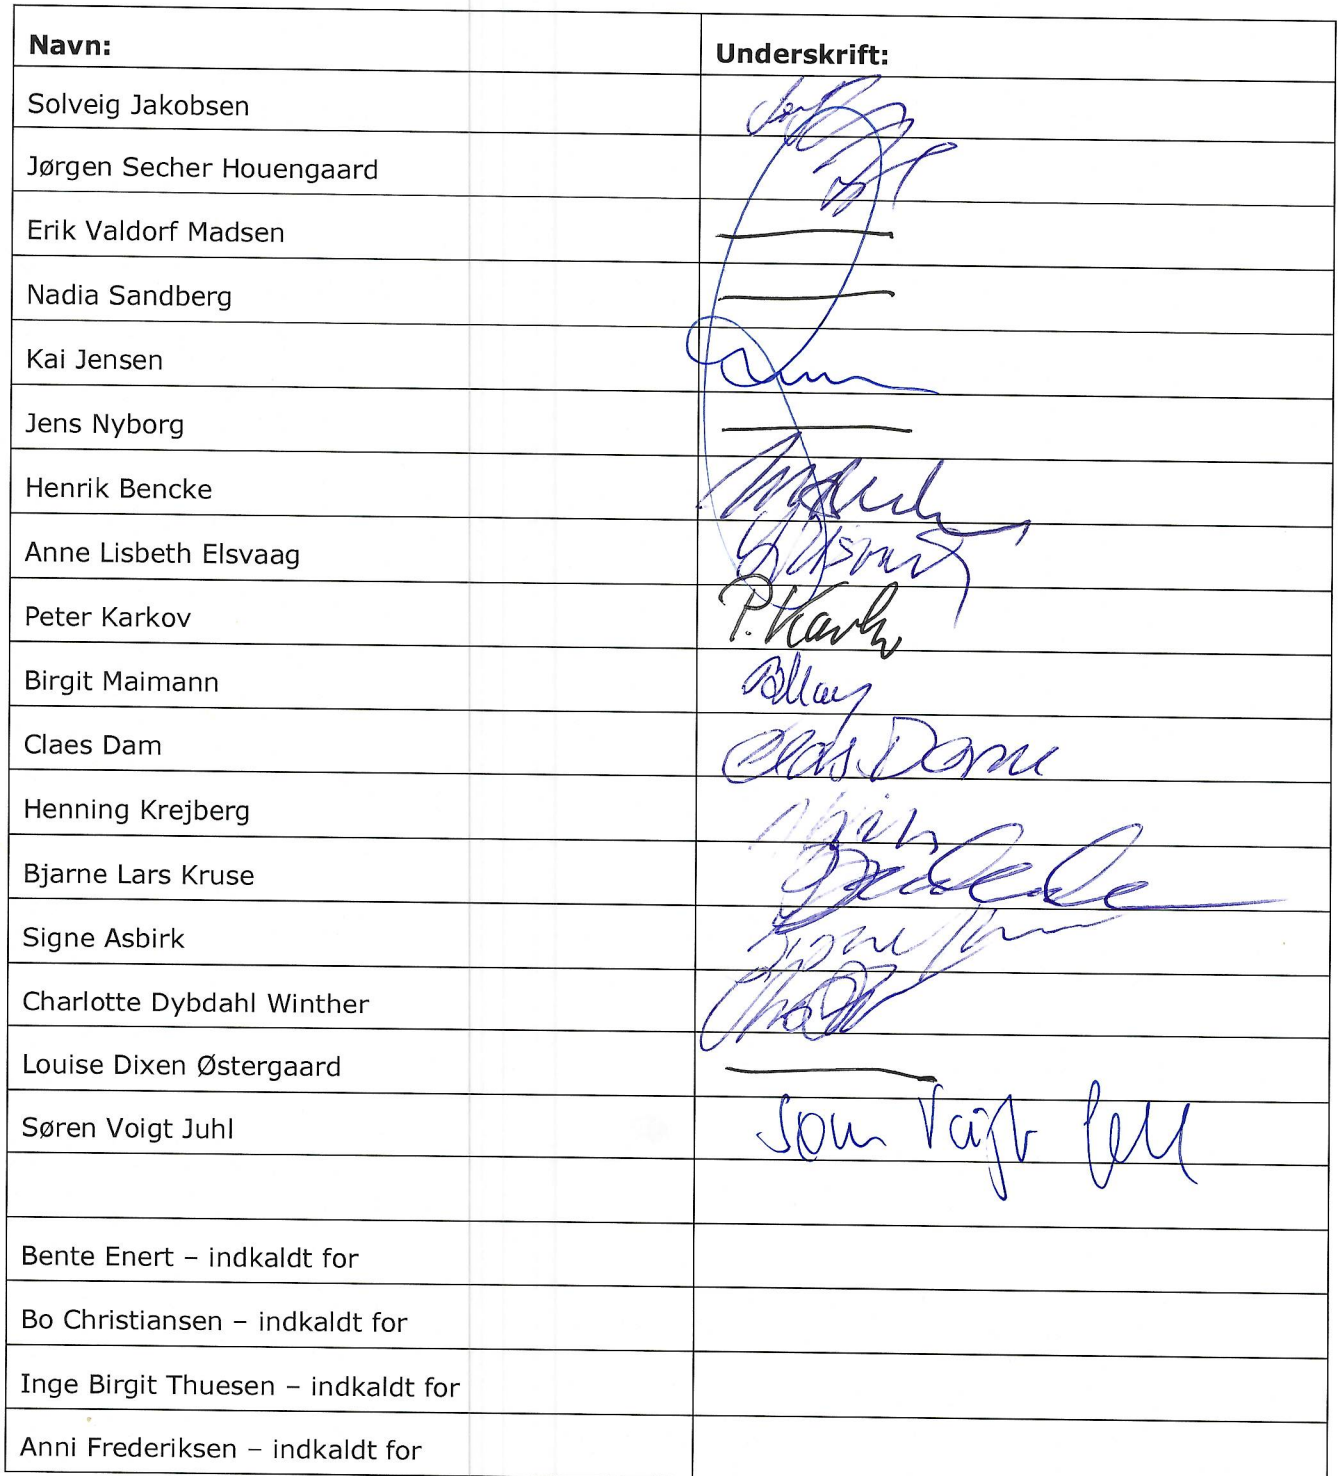 Navn: Underskrift:
Solveig Jakobsen
Jørgen Secher Houengaard
Erik Valdorf Madsen
Nadia Sandberg
Kai Jensen
Jens Nyborg
Henrik Bencke
Anne Lisbeth Elsvaag
Peter Karkov P. Karkov
Birgit Maimann
Claes Dam
Henning Krejberg
Bjarne Lars Kruse
Signe Asbirk
Charlotte Dybdahl Winther
Louise Dixen Østergaard
Søren Voigt Juhl
Bente Enert – indkaldt for
Bo Christiansen – indkaldt for
Inge Birgit Thuesen – indkaldt for
Anni Frederiksen – indkaldt for